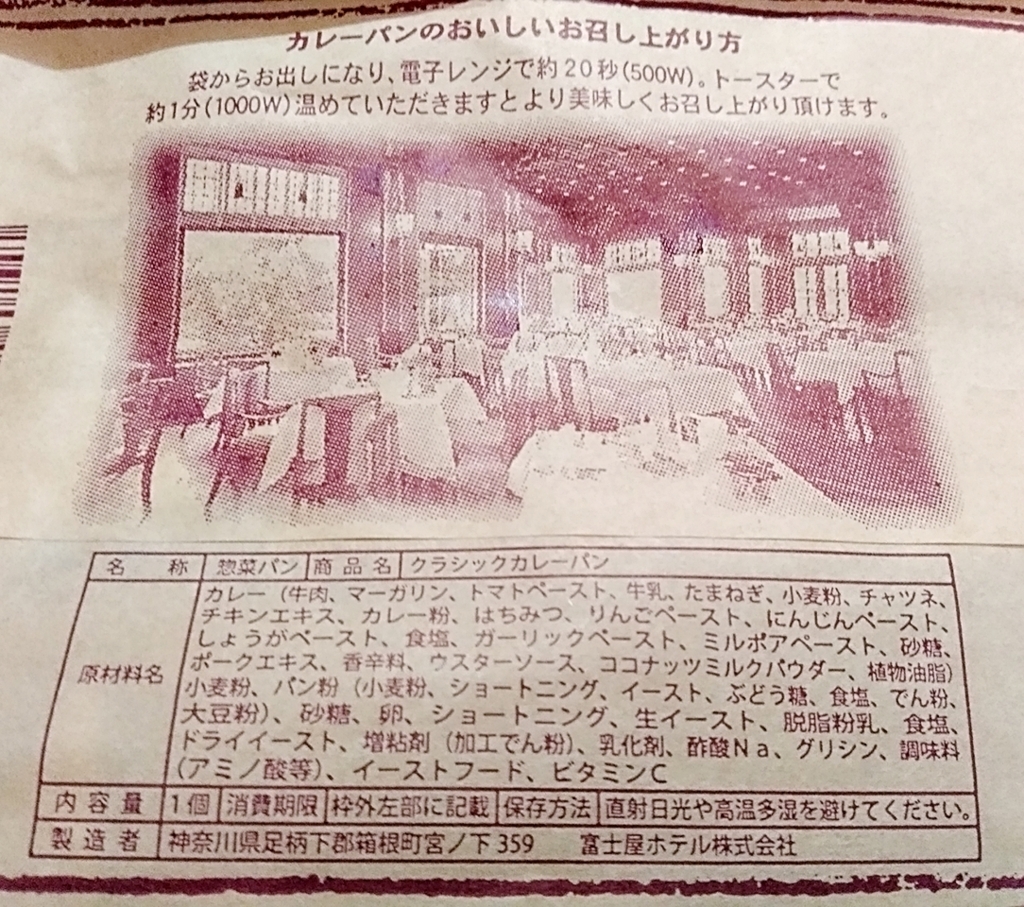 カレーパンのおいしいお召し上がり方
袋からお出しになり、電子レンジで約20秒(500W)。トースターで
約1分(1000W)温めていただきますとより美味しくお召し上がり頂けます。
名 称 惣菜パン 商品名 クラシックカレーパン
原材料名
カレー（牛肉、マーガリン、トマトペースト、牛乳、たまねぎ、小麦粉、チャツネ、
チキンエキス、カレー粉、はちみつ、りんごペースト、にんじんペースト、
しょうがペースト、食塩、ガーリックペースト、ミルポアペースト、砂糖、
ポークエキス、香辛料、ウスターソース、ココナッツミルクパウダー、植物油脂）
小麦粉、パン粉（小麦粉、ショートニング、イースト、ぶどう糖、食塩、でん粉、
大豆粉）、砂糖、卵、ショートニング、生イースト、脱脂粉乳、食塩、
ドライイースト、増粘剤（加工でん粉）、乳化剤、酢酸Na、グリシン、調味料
（アミノ酸等）、イーストフード、ビタミンC
内容量 1個 消費期限 枠外左部に記載 保存方法 直射日光や高温多湿を避けてください。
製造者 神奈川県足柄下郡箱根町宮ノ下359 富士屋ホテル株式会社